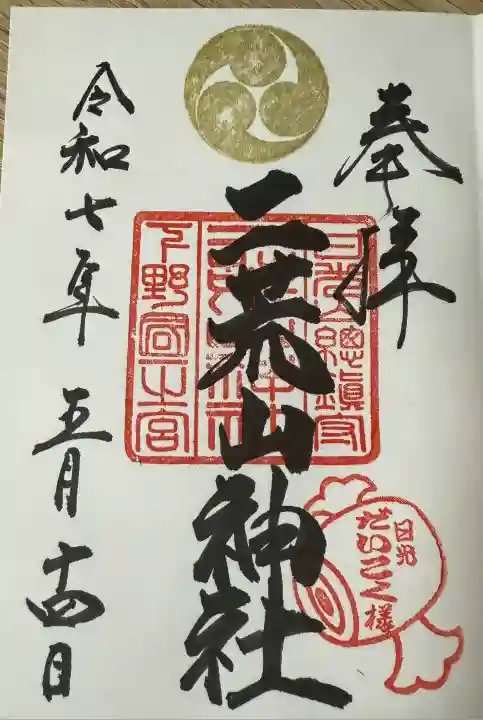 奉拝
日光總鎮守
二荒山神社
二荒山神社
下野國一之宮
日光
だいこく様
令和七年 五月 十四日